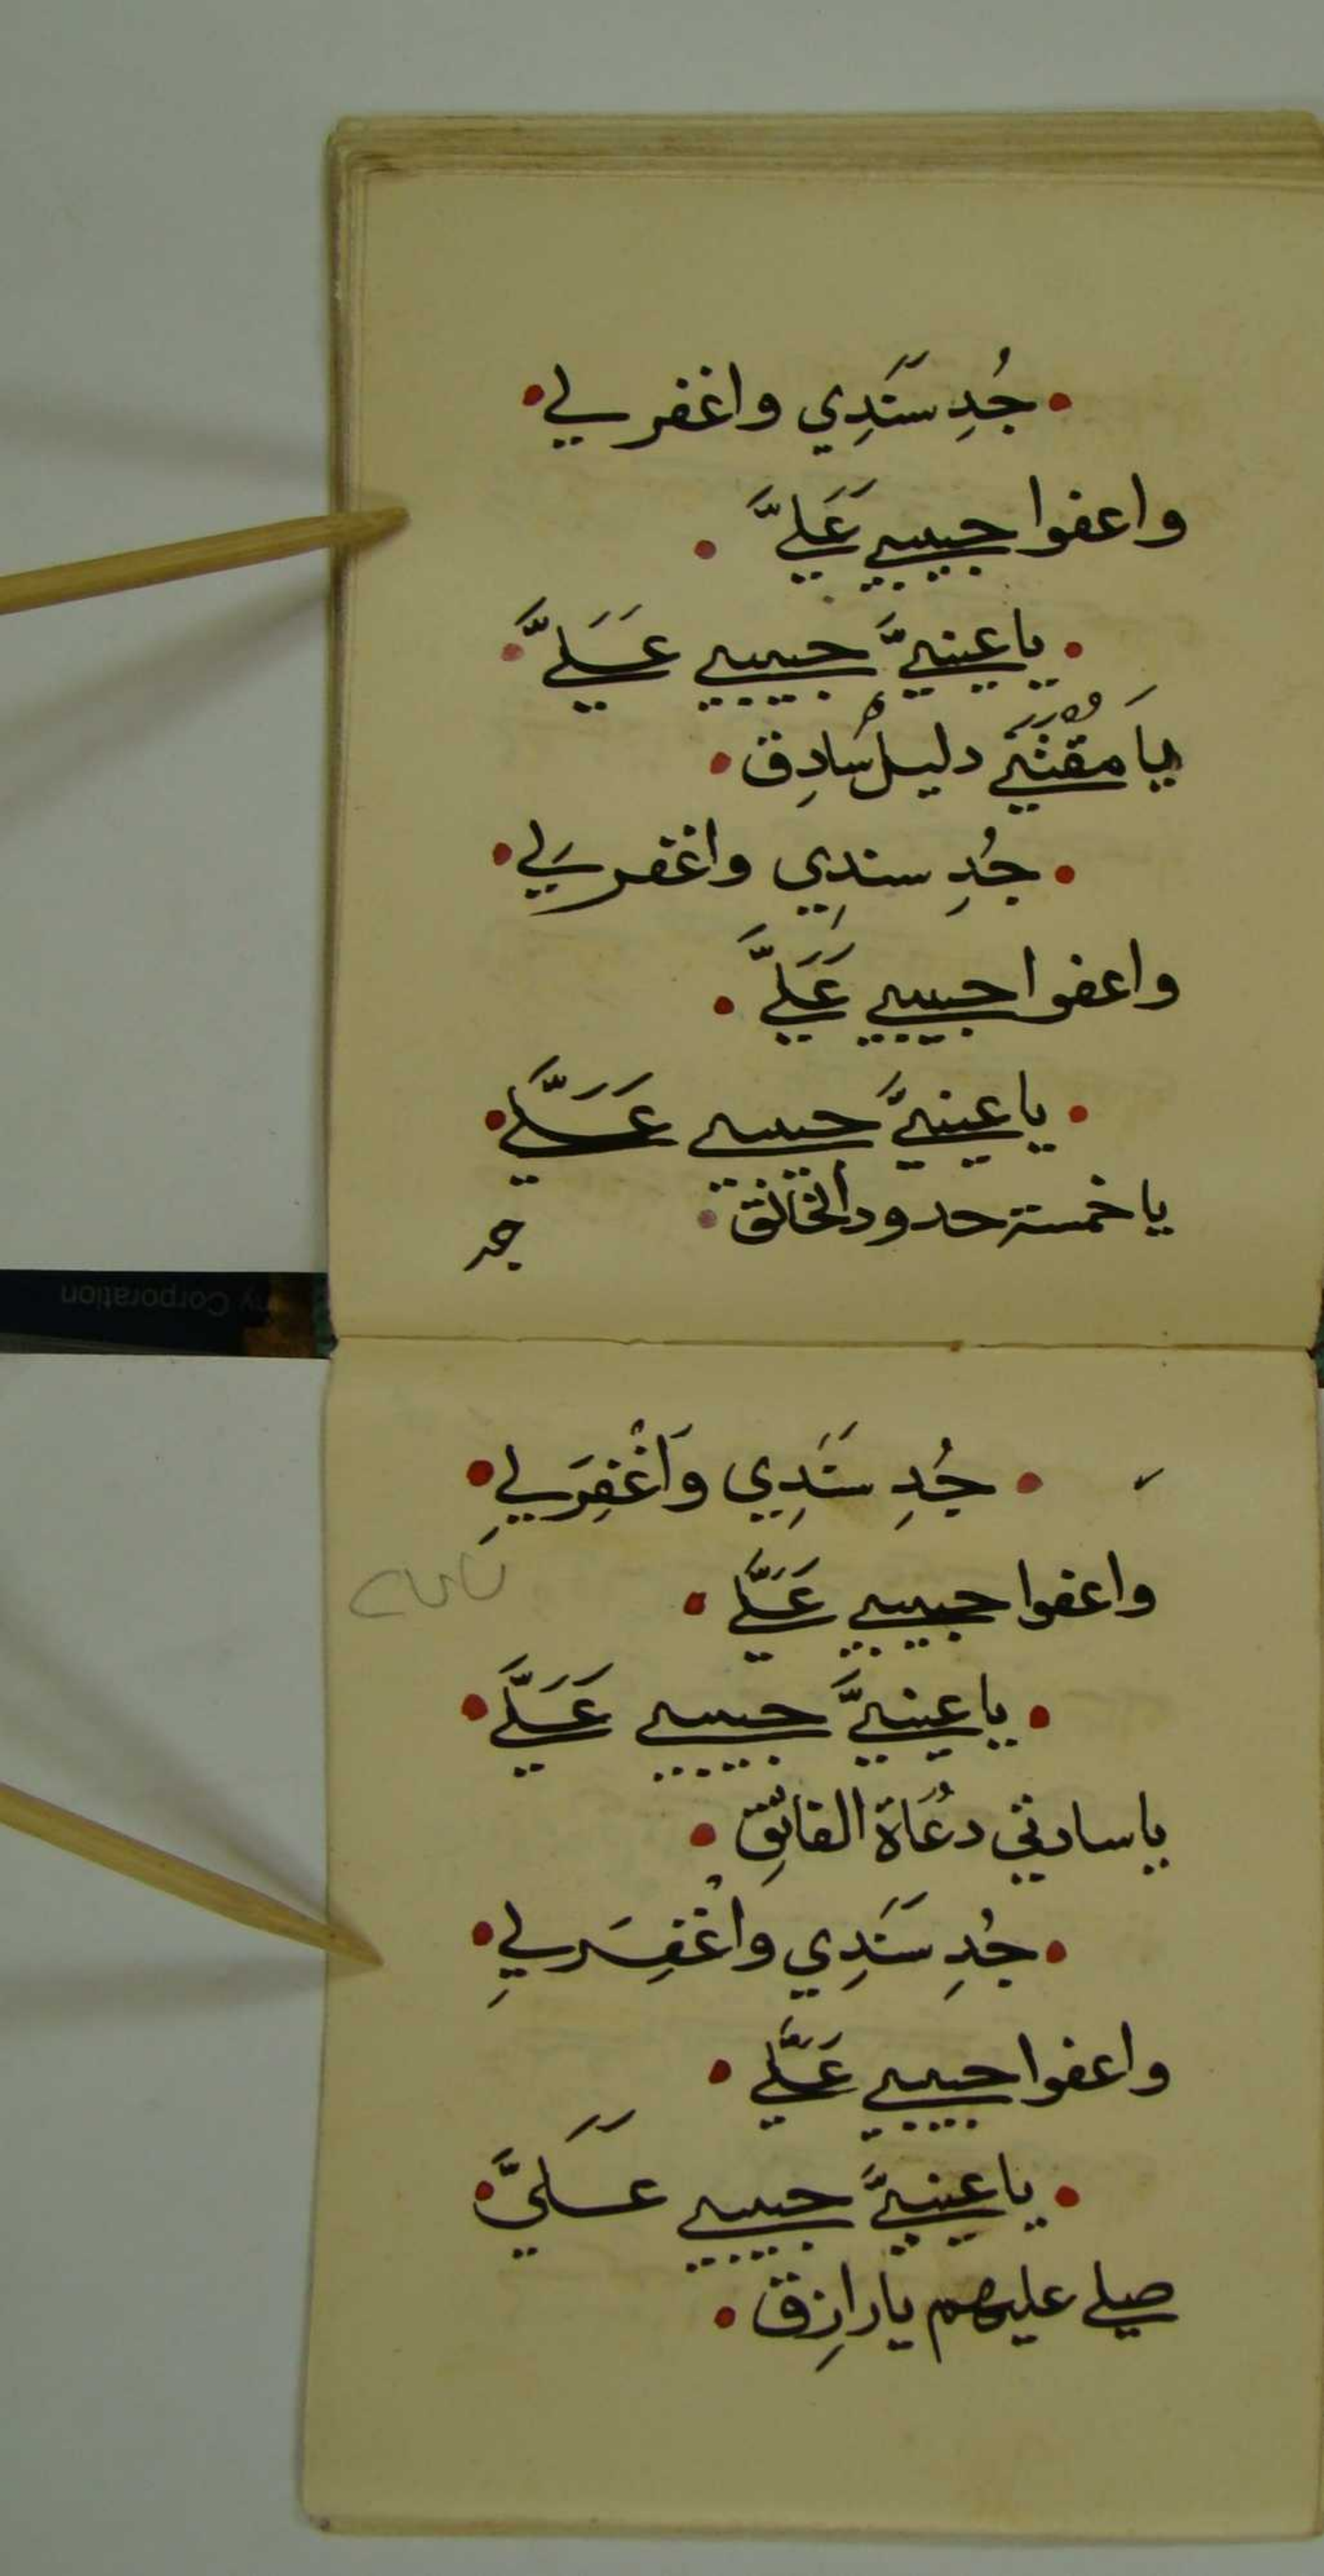 جُدِ سَنَدِي واغفر لي
واعفوا حبيبي عَليَّ
يا عينيَّ حبيبي عَليَّ
يا مقنني دليل سادِق
جُدِ سندِي واغفر لي
واعفوا حبيبي عَليَّ
يا عينيَّ حبيبي عَليَّ
يا خمسة حدود الخالق
جُدِ سَنَدِي وَاغْفِر لي
واعفوا حبيبي عَليَّ
يا عينيَّ حبيبي عَليَّ
يا سادتي دعُاة الفائق
جُدِ سَنَدِي واغْفِر لي
واعفوا حبيبي عَليَّ
يا عينيَّ حبيبي عَليَّ
صلي عليهم يا رازِق
ny Corporation